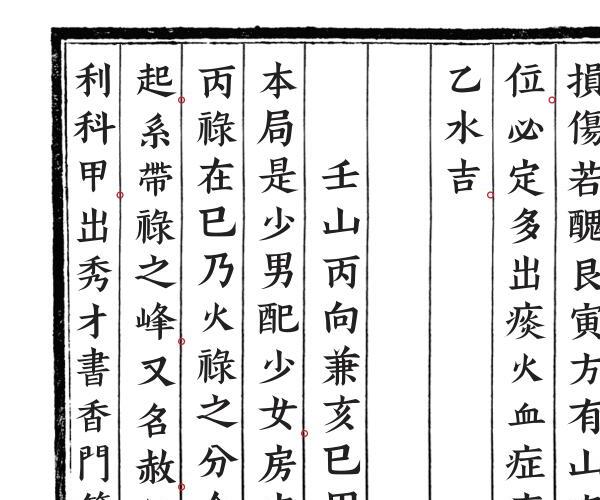 損傷若醜艮寅方有山
位必定多出痰火血症
乙水吉
壬山丙向兼亥巳
本局是少男配少女房
丙祿在巳乃火祿之分
起系帶祿之峰又名赦
利科甲出秀才書香門